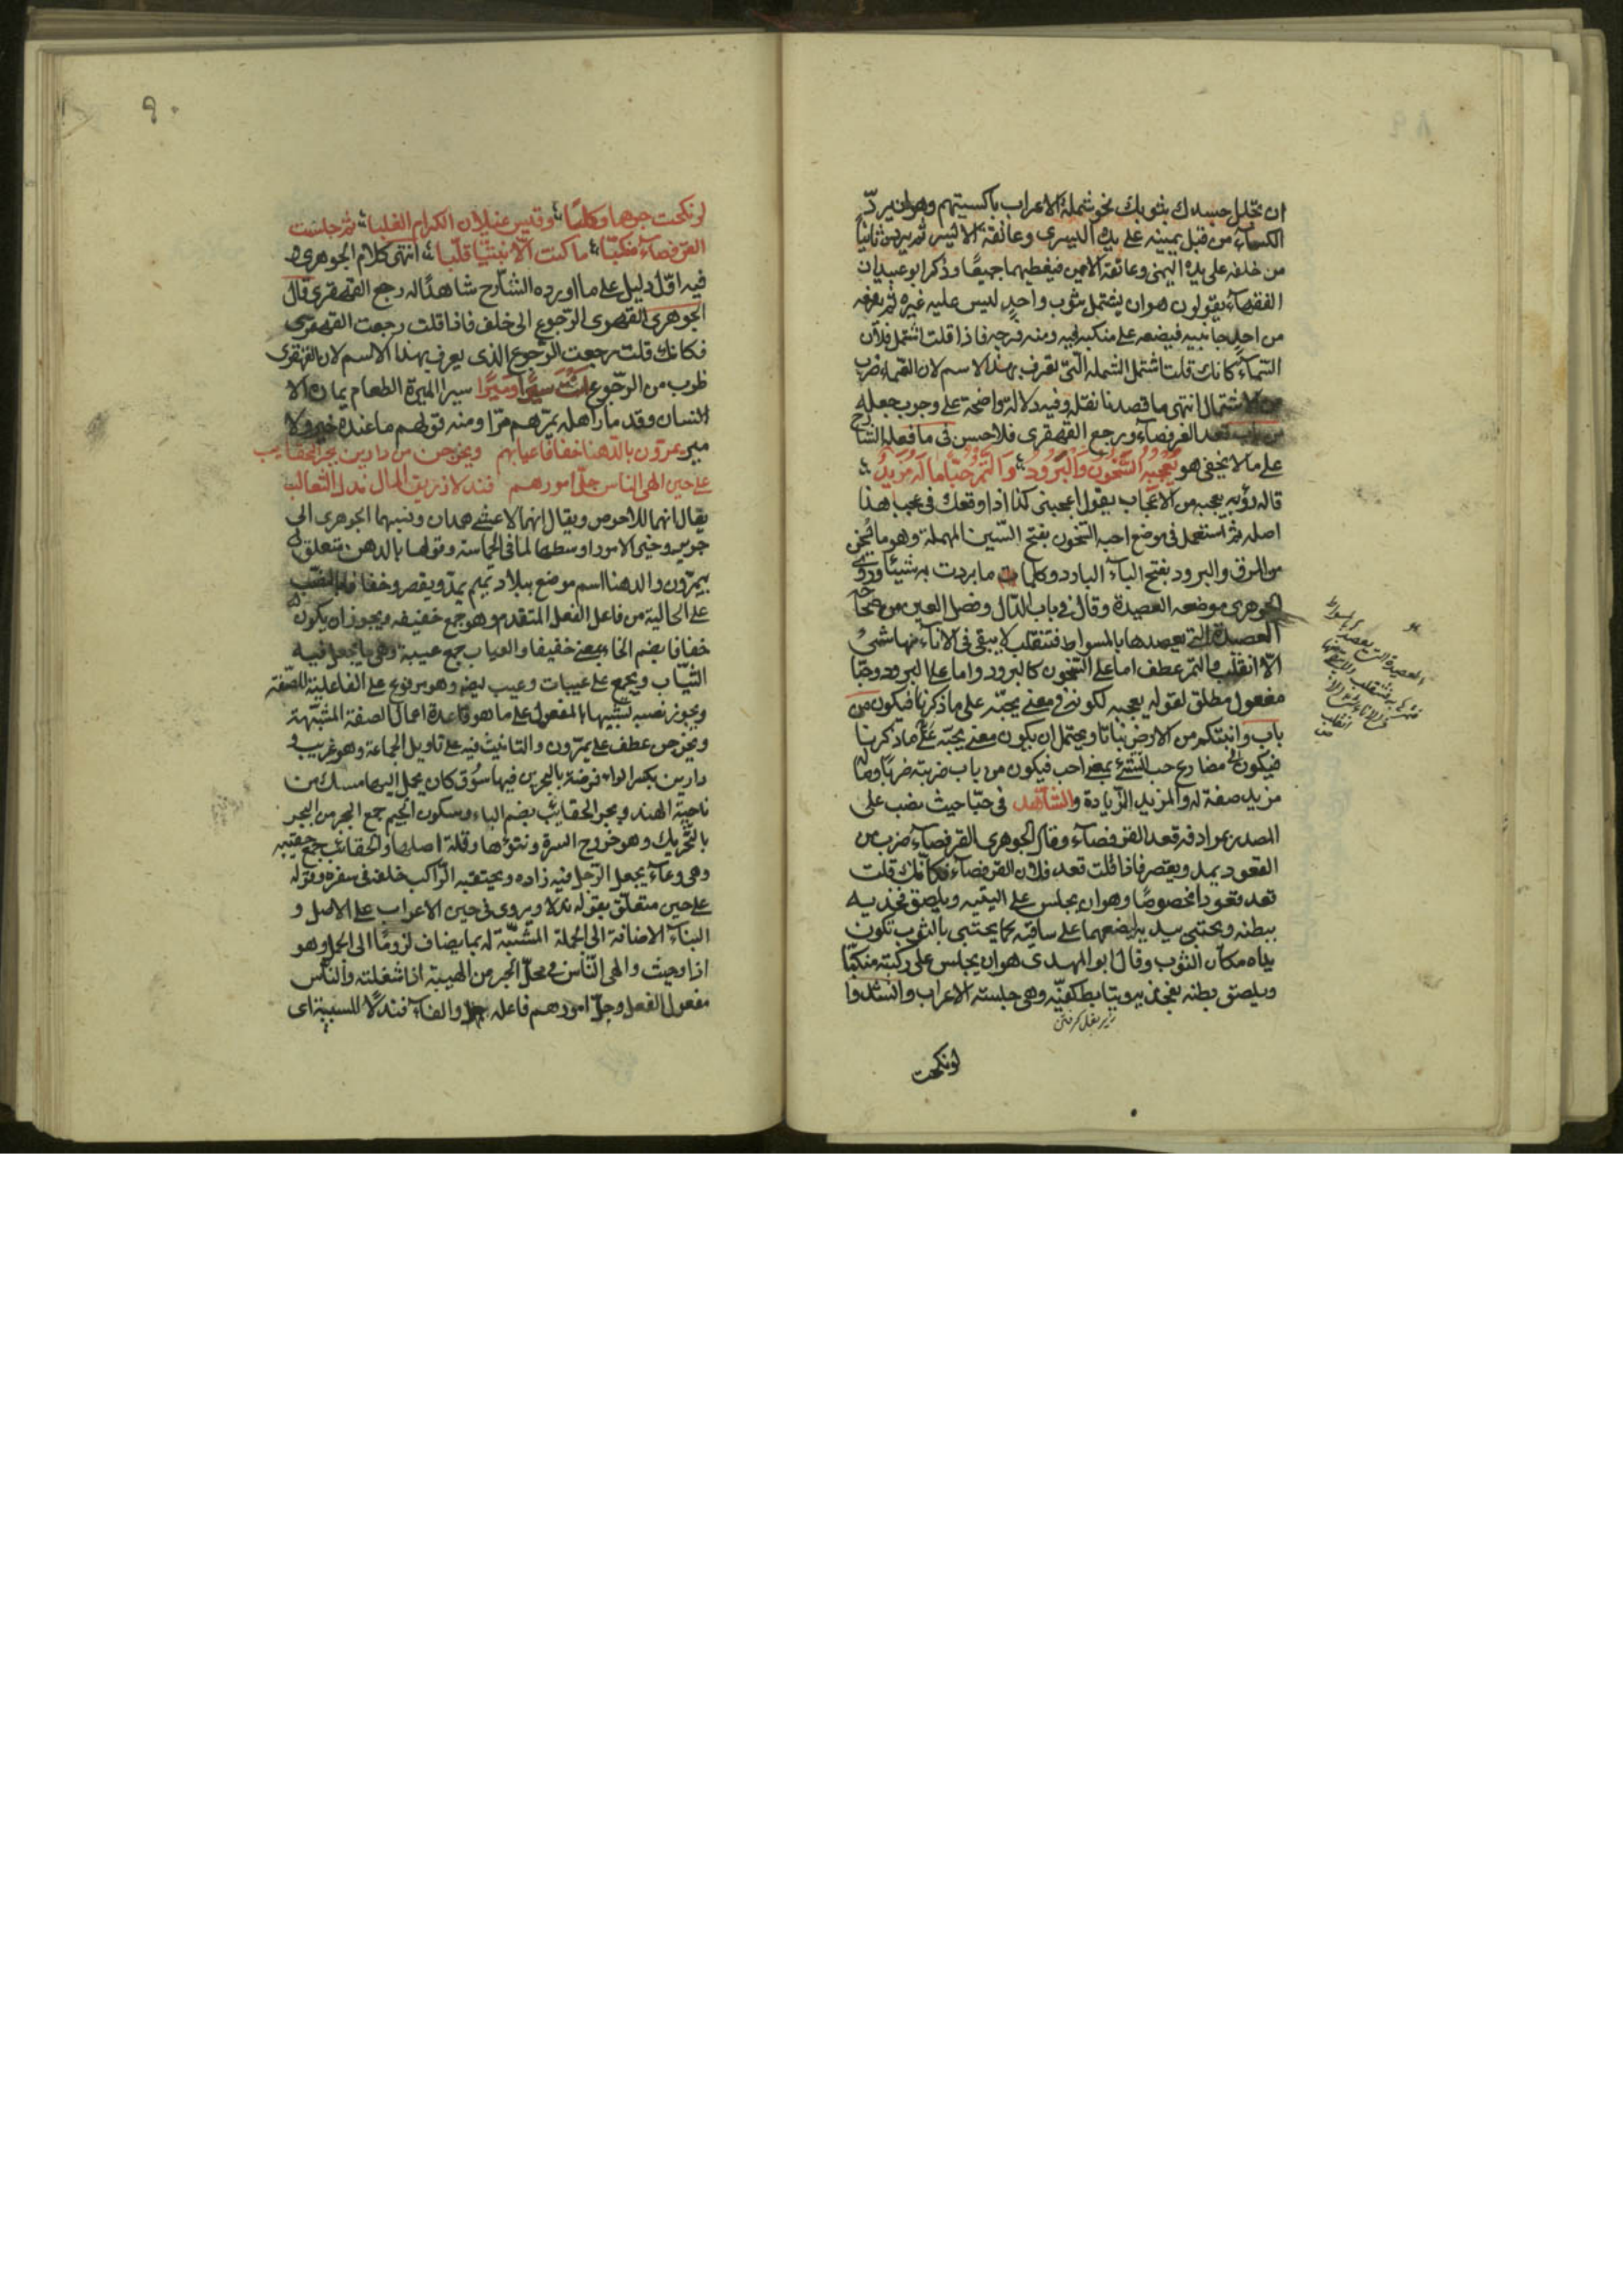 ان تجلل جسدك بثوبك نحو شملة الاعراب باكسيتهم وهو ان يردّ
الكساء من قبل يمينه على يده اليسرى وعاتقه الايسر ثم يرده ثانيًا
من خلفه على يده اليمنى وعاتقه الايمن فيغطيهما جميعًا وذكر ابو عبيد ان
الفقهاء يقولون هو ان يشتمل بثوب واحد ليس عليه غيره ثم يرفعه
من احد جانبيه فيضعه على منكبه فيبدو منه فرجه فاذا قلت اشتمل فلان
الصماء كانك قلت اشتمل الشملة التي تعرف بهذا الاسم لان الصماء ضرب
من الاشتمال انتهى ما قصدنا نقله وفيه دلالة واضحة على وجوب جعله
من باب قعد القرفصاء ورجع القهقرى فلا حسن في ما فعله الشارح
على ما لا يخفى هو يُعْجِبُهُ السَّخُونُ وَالْبَرُودُ وَالتَّمْرُ حُبًّا مَا لَهُ مَزِيدُ
قاله رؤبه يعجبه من الاعجاب يقول اعجبني كذا اذا اوقعك في عجب هذا
اصله ثم استعمل في موضع احب السخون بفتح السين المهملة وهو ما يسخن
من المرق والبرود بفتح الباء البارد وكلما ما بردت به شيئًا وروى
الجوهري موضعه العصيدة وقال في باب الدال وفصل العين من صحاحه
العصيدة التي يعصدها بالمسواط فتنقلب لا يبقى في الاناء منها شئ
الّا انقلب والتمر عطف اما على السخون كالبرود واما على البرود وحبًّا
مفعول مطلق لقوله يعجبه لكونه في معنى يحبّه على ما ذكرنا فيكون من
باب وانبتكم من الارض نباتا ويحتمل ان يكون معنى يحبّه على ما ذكرنا
فيكون مضارع حب الشئ بمعنى احب فيكون من باب ضربته ضربًا وما له
مزيد صفة له والمزيد الزيادة والشاهد في حبّا حيث نصب على
المصدر بمرادفه قعد القرفصاء وقال الجوهري القرفصاء ضرب من
القعود يمد ويقصر فاذا قلت قعد فلان القرفصاء فكانك قلت
قعد قعودا مخصوصًا وهو ان يجلس على اليتيه ويلصق فخذيه
ببطنه ويحتبي بيديه يضعهما على ساقيه كما يحتبى بالثوب تكون
يداه مكان الثوب وقال ابو المهدى هو ان يجلس على ركبتيه منكبًّا
ويلصق بطنه بفخذيه ويتابط كفيّه وهي جلسة الاعراب وانشدوا
زير بغل كرفتن
لو نكحت
العصيدة التي تعصد بالمسواط
لو نكحت جرهما وكلبًا وقيس عيلان الكرام الغلبا ثم جلست
القرفصاء منكبّا ما كنت الّا نبطيًا قلبا انتهى كلام الجوهري و
فيه ادّل دليل على ما اورده الشارح شاهدًا له رجع القهقرى قال
الجوهري القهقرى الرّجوع الى خلف فاذا قلت رجعت القهقرى
فكانك قلت رجعت الرّجوع الذى يعرف بهذا الاسم لان القهقرى
ضرب من الرّجوع سيرًا وميرًا سيرا الميرة الطعام يمتاره الا
النسان وقد مار اهله يميرهم ميرا ومنه قولهم ما عنده خير ولا
مير يمرّون بالدّهنا خفافا عيابهم ويخرجن من دارين بجر الحقايب
على حين الهى الناس جلّ امورهم فندلا زريق المال ندل الثعالب
يقال انهما للاحوص ويقال انهما لاعشى همدان ونسبهما الجوهرى الى
جرير وخير الامور اوسطها لما في الحماسة وقولها بالدهنا متعلق
بيمرّون والدهنا اسم موضع ببلاد تميم يمدّ ويقصر وخفافا نصب
على الحالية من فاعل الفعل المتقدم وهو جمع خفيف ويجوز ان يكون
خفافا بضم الخاء بمعنى خفيفا والعياب جمع عيبة وهي ما يجعل فيه
الثيّاب ويجمع على عيبات وعيب ايضا وهو مرفوع على الفاعلية للصّفة
ويجوز نصبه تشبيها بالمفعول على ما هو قاعدة اعمال الصفة المشبّهة
ويخرجن عطف على يمرّون والتانيث فيه على تاويل الجماعة وهو غريب و
دارين بكسر الراء فرضة بالبحرين فيها سوق كان يحمل اليها مسك من
ناحية الهند وبجر الحقائب بضم الباء وسكون الجيم جمع ابجر من البجر
بالتّحريك وهو خروج السرة ونتوّها وغلظ اصلها والحقائب جمع حقيبه
وهي وعاء يجعل الرّجل فيه زاده ويحتقبه الرّاكب خلفه في سفره وقوله
على حين متعلّق بقوله ندلا ويروى في حين الاعراب على الاصل و
البناء لاضافة الى الجملة المشبّهة له بما يضاف لزومًا الى الجمل وهو
اذ وحيث والهى النّاس في محلّ الجر من الهيته اذا شغلته والنّاس
مفعول الفعل وجلّ امورهم فاعله والفاء فندلًا للسببية اى